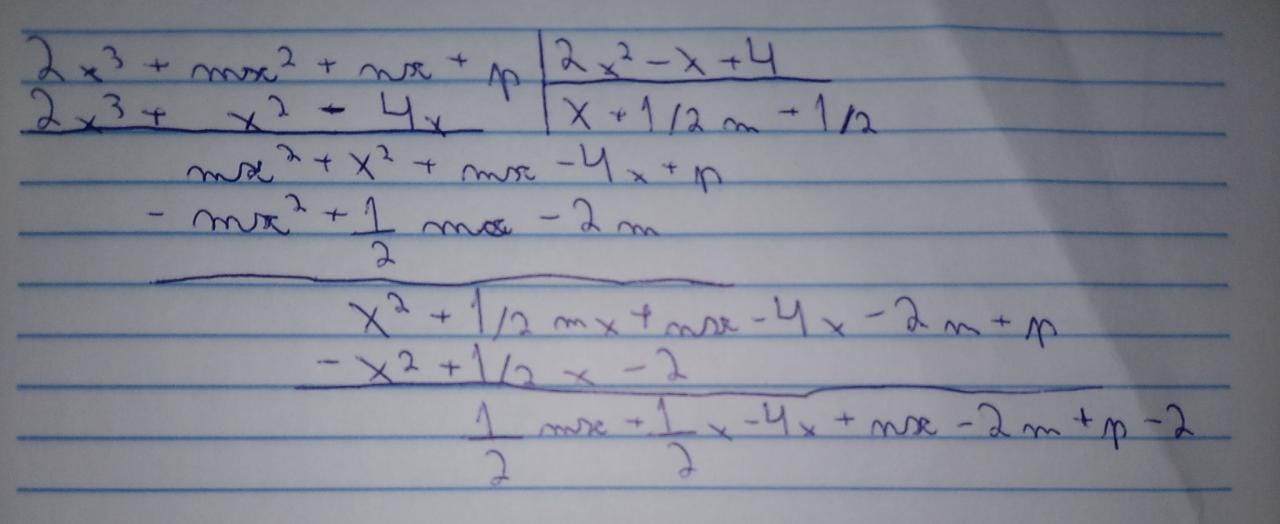 2x³ + mx² + nx + p | 2x² - x + 4
2x³ + x² - 4x | x + 1/2 m + 1/2
mx² + x² + nx - 4x + p
- mx² + 1/2 mx - 2m
x² + 1/2 mx + nx - 4x - 2m + p
- x² + 1/2 x - 2
1/2 mx + 1/2 x - 4x + nx - 2m + p - 2